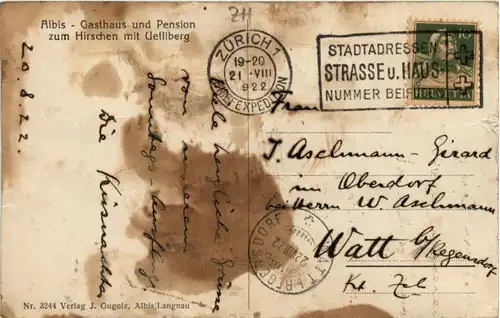 Albis - Gasthaus und Pension
zum Hirschen mit Uetliberg
20.8.22.
Viele herzliche Grüsse
von unserem
Sonntags-Ausflug
Die Küsnachter
ZÜRICH 1
19-20
21. VIII
922
BRIEFEXPEDITION
STADTADRESSEN
STRASSE u. HAUS-
NUMMER BEI
HELVETIA
Frau
J. Aschmann-Girard
im Oberdorf
bei Herrn W. Aschmann
Watt b/Regensdorf
Kt. Zch
WATT (REGENSDORF)
Nr. 3244 Verlag J. Gugolz, Albis/Langnau